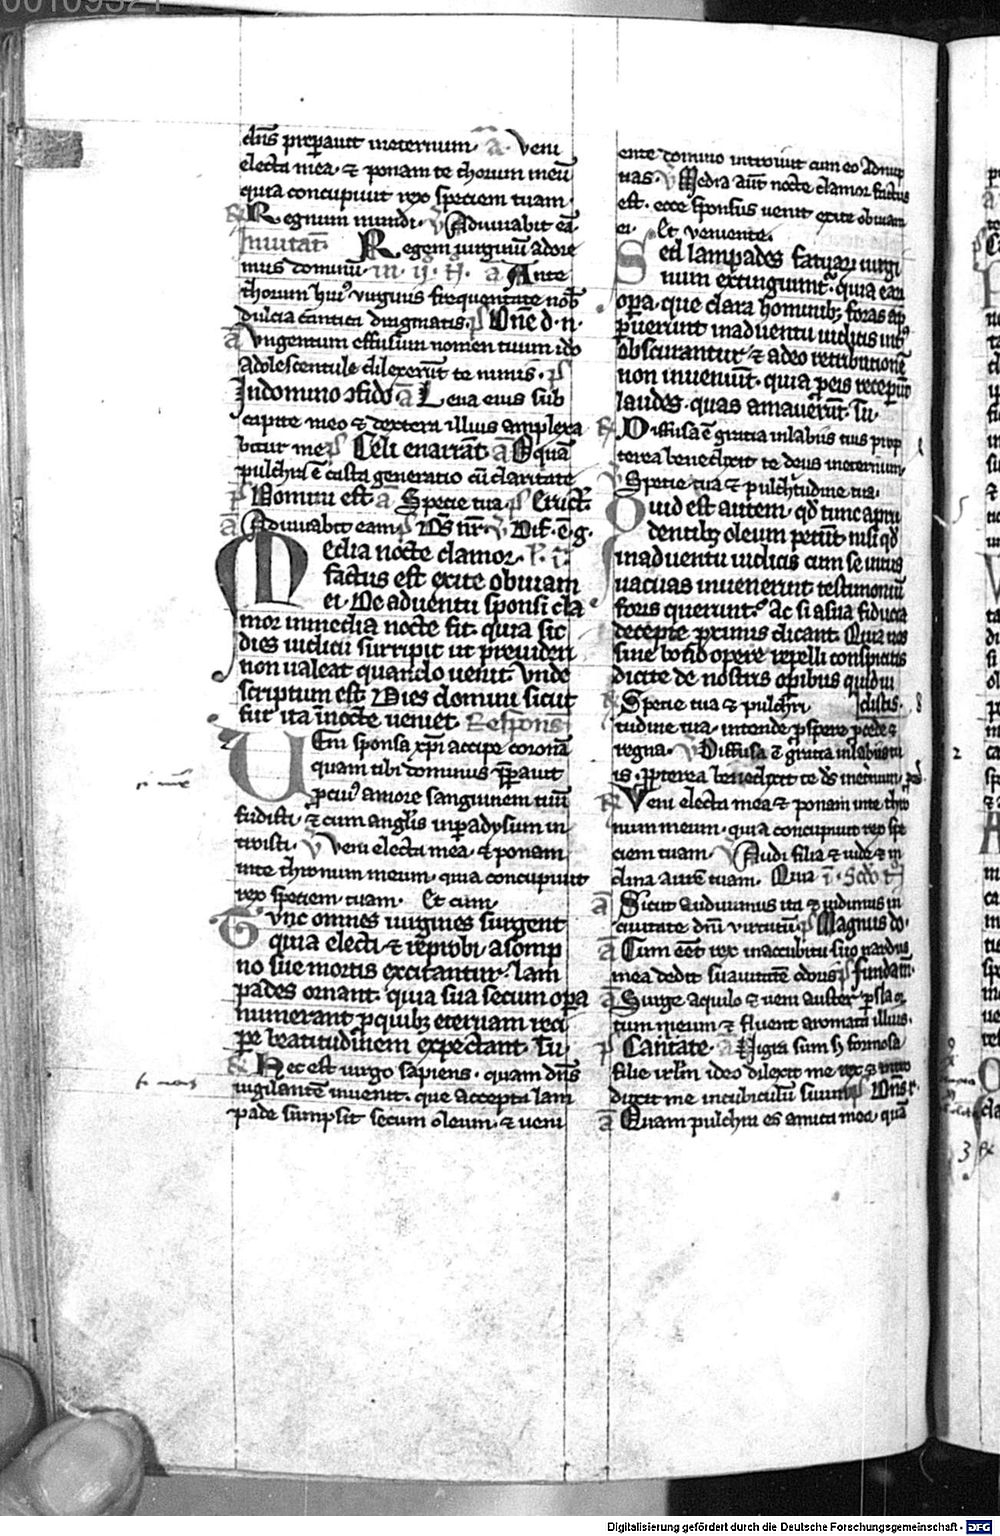 00109321
dn̄s preparauit ineternum. a᷎. Veni
electa mea. ⁊ ponam te thorum meū
quia concupiuit rex speciem tuam.
R̷ Regnum mundi. v̷ Adiuuabit eā.
Inuitat᷎. Regem uirginū adore
mus dominū. in. ij. N̄. a᷎ Ante
thorum hui᷒ uirginis frequentate nob̄
dulcia cantica dragmatis. ps̄ Dn̄e d. n.
a᷎ Vngentum effusum nomen tuum ido
adolescentule dilexerūt te nimis. ps̄
Indomino ɔfido. a᷎ Leua eius sub
capite meo ⁊ dextera illius amplexa
bitur me. ps̄ Celi enarrāt a᷎ O quā
pulchra ē casta generatio cū claritate
ps̄ Domini est a᷎ Specie tua. ps̄ Eruct᷎.
a᷎ Adiuuabit eam ps̄ Ds̄ nr̄. v̷ Dif. ē. g.
Media nocte clamor. l. i᷎.
factus est exite obuiam
ei. De aduentu sponsi cla
mor inmedia nocte fit. quia sic
dies iudicii surripit ut preuideri
non ualeat quando uenit. Vnde
scriptum est Dies domini sicut
fur ita īnocte ueniet. Respons̄
Veni sponsa xp̄i accipe coronā
quam tibi dominus p̄parauit
ꝓ cui᷒ amore sanguinem tuū
fudisti. ⁊ cum angl̄is inꝑadysum in
troisti. v̷ Veni electa mea. ⁊ ponam
inte thronum meum. quia concupiuit
rex speciem tuam. Et cum
Tunc omnes uirgines surgent
quia electi ⁊ reprobi asomp
no sue mortis excitantur. Lam
pades ornant. quia sua secum opa
numerant ꝓ quibꝫ eternam reci
pe beatitudinem expectant. Tu
R̷ Hec est uirgo sapiens. quam dn̄s
uigilantē inuenit. que accepta lam
pade sumpsit secum oleum. ⁊ veni
ente domino introiuit cum eo adnup
tias. v̷ Media aūt nocte clamor factus
est. ecce sponsus uenit exite obuiam
ei. Et veniente.
Sed lampades fatuarū uirgi
num extinguunt᷑. quia earū
opera. que clara hominibꝫ foras ap
puerunt inaduentu iudicis int᷒
obscurantur ⁊ adeo retributionē
non inueniūt. quia ꝓ eis receperūt
laudes. quas amauerūt. Tu.
R̷ Diffusa ē gratia inlabiis tuis prop
terea benedixit te deus ineternum.
v̷ Specie tua ⁊ pulchritudine tua.
Quid est autem. qd̄ tunc aprū
dentibꝫ oleum petūt nisi qd̄
inaduentu iudicis cum se intus
uacuas inuenerint testimoniū
foris querunt. Ac si asua fiducia
decepte proximis dicant. Quia nos
sine bono opere repelli conspicitis
dicite de nostris oꝑibus quid ui
R̷ Specie tua ⁊ pulchri distis.
tudine tua. intende ꝓspere ꝓcede ⁊
regna. v̷ Diffusa ē gratia inlabiis tu
is. ꝓpterea benedixit te ds̄ ineternum.
R̷ Veni electa mea ⁊ ponam inte thro
num meum. quia concupiuit rex spe
ciem tuam. v̷ Audi filia ⁊ uide ⁊ in
clina aurē tuam. Quia
a᷎ Sicut audiuimus ita ⁊ uidimus in
ciuitate dn̄i uirtutū. ps̄ Magnus do.
a᷎ Cum eēt rex inaccubitu suo nardus
mea dedit suauitatē odoris. ps̄ fundam̄.
a᷎ Surge aquilo ⁊ ueni auster ꝑfla or
tum meum ⁊ fluent aromata illius.
ps̄ Cantate. a᷎ Nigra sum s᷎ formosa
filie irl̄m ideo dilexit me rex ⁊ intro
duxit me incubiculū suum. ps̄ Dn̄s r.
a᷎ Quam pulchra es amica mea. quā
Digitalisierung gefördert durch die Deutsche Forschungsgemeinschaft - DFG